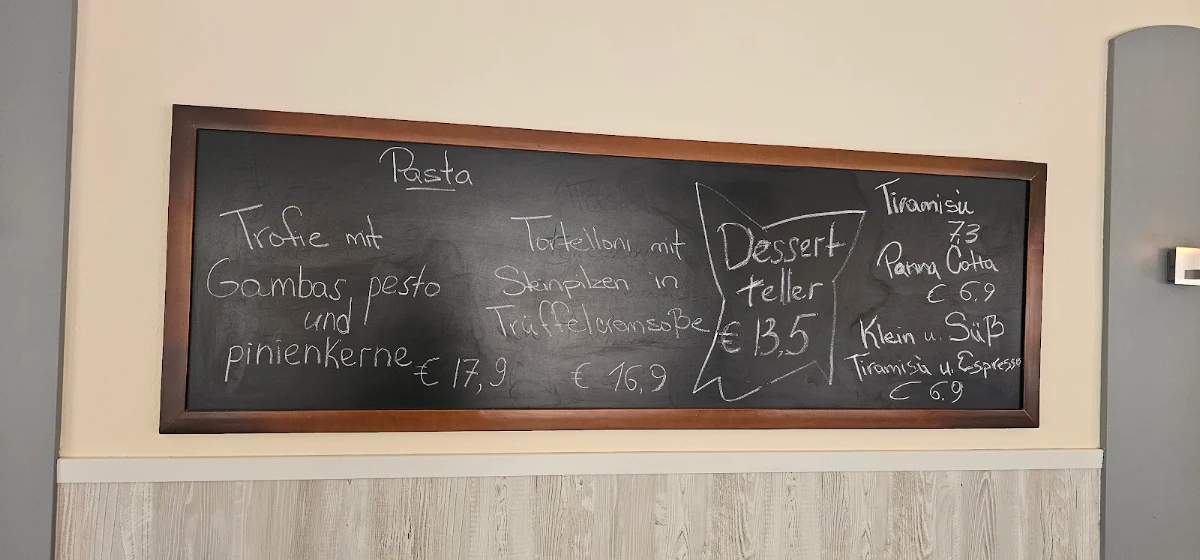 Pasta
Trofie mit
Gambas, pesto
und
pinienkerne € 17,9
Tortelloni mit
Steinpilzen in
Trüffelcremsoße
€ 16,9
Dessert
teller
€ 13,5
Tiramisù
7,3
Panna Cotta
€ 6.9
Klein u. Süß
Tiramisù u. Espresso
€ 6.9